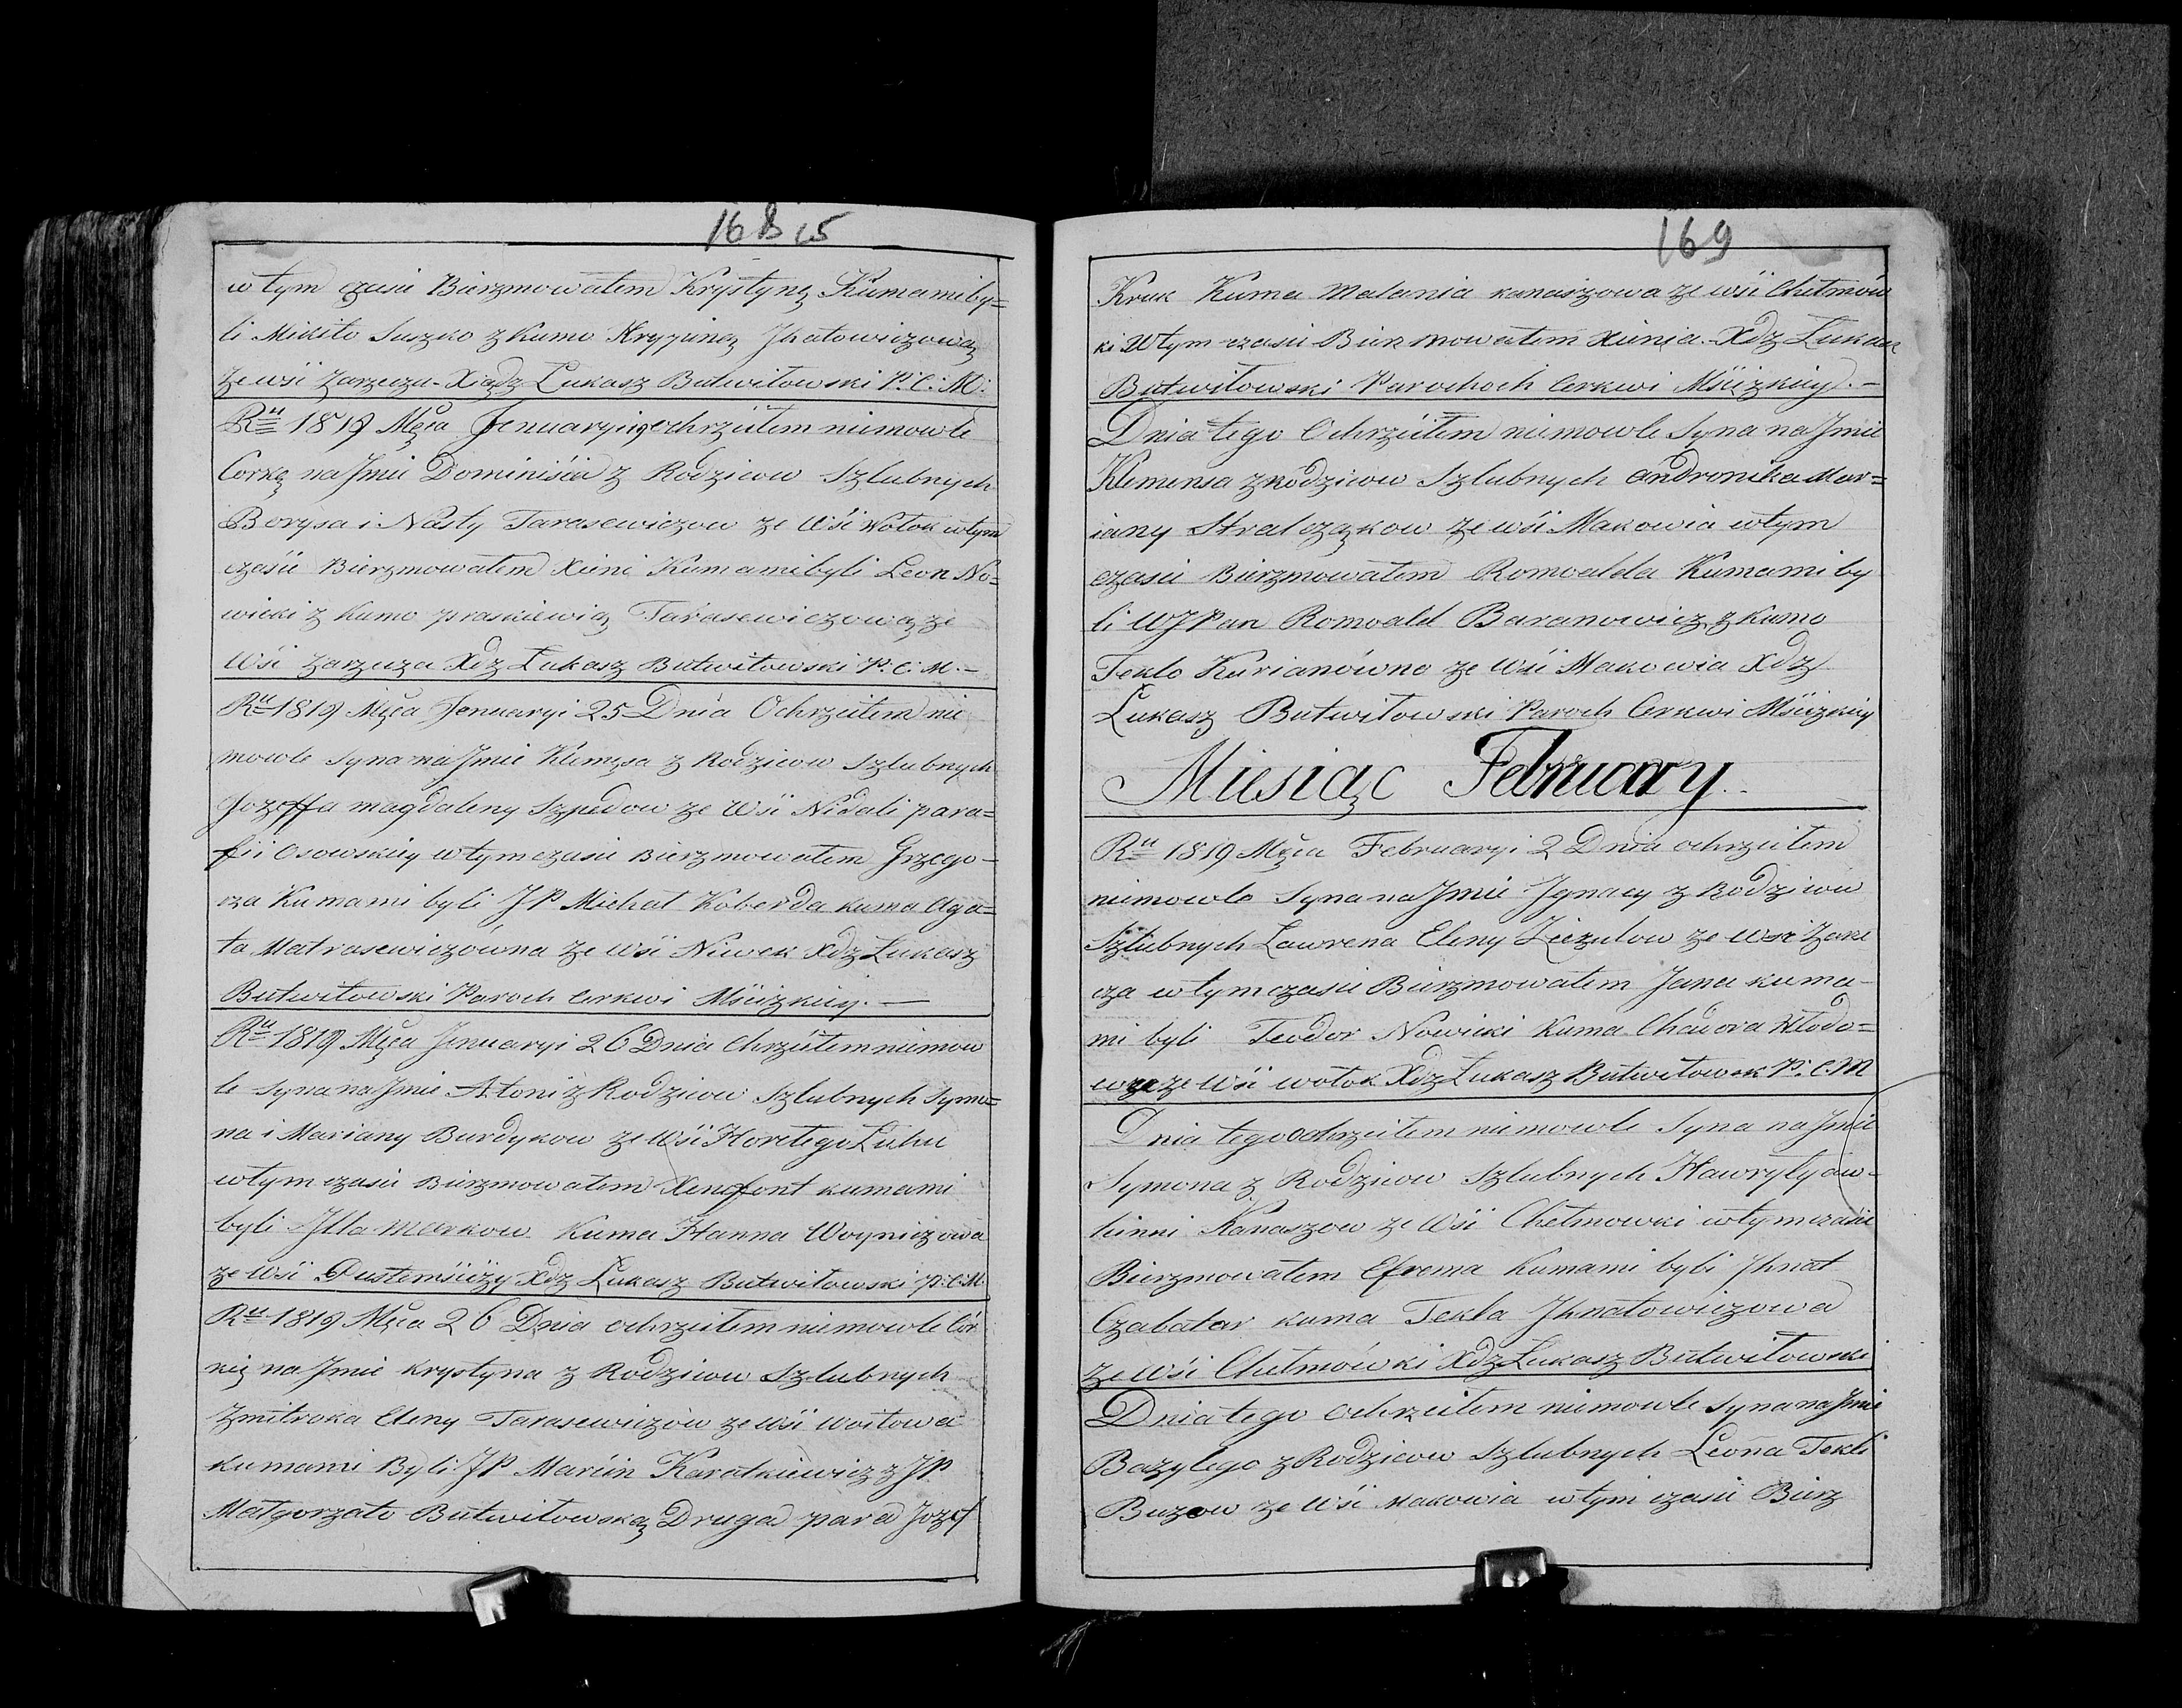 168 15
w tym czasie Bierzmowałem Krystynę Kumami by=
li Mikito Suszko z Kumo Krypiną Jhatowiczową
ze wśi Zarzecza Xiądz Łukasz Butwiłowski P: C: M:
Ru 1819 Mca Jenuaryi 19 ochrzciłem niemowle
Corkę na Jmie Dominiśia z Rodzicow Szlubnych
Borysa i Nasty Tarasewiczow ze Wśi Wołok w tym
czaśie Bierzmowałem Xieni Kumami byli Leon No=
wicki z Kumo praskiewią Tarasewiczową ze
Wśi Zarzecza Xdz Łukasz Butwiłowski P. C. M. —
Ru 1819 Mca Jenuaryi 25 Dnia Ochrzciłem nie
mowle Syna na Jmie Klemęsa z Rodzicow Szlubnych
Jozeffa magdaleny Szpedow ze Wśi Nidali para=
fii Osowskiey w tym czasie Bierzmowałem Grzego-
rza Kumami byli JP Michał Koberda kuma Aga=
ta Matrasewiczówna ze wśi Niwek Xdz Łukasz
Butwiłowski Paroch Cerkwi Mśćizkiey. —
Ru 1819 Mca Jenuaryi 26 Dnia Chrzciłem niemow
le Syna na Jmie Atoni z Rodzicow Szlubnych Symo=
na i Mariany Burdykow ze Wśi Horełego Łuhu
w tym czasie Bierzmowałem Xenofont kumami
byli Jlla Markow Kuma Hanna Woyniczowa
ze Wśi Pustemśćiży Xdz Łukasz Butwiłowski P. C. M.
Ru 1819 Mca 26 Dnia ochrzciłem niemowle Cór
kię na Jmie Krystyna z Rodzicow Szlubnych
Zmitroka Eleny Tarasewiczow ze wśi Woitowa
kumami Byli JP Marćin Karatkiewicz z JP
Małgorzato Butwiłowską Druga para Jozef
169
Kruk Kuma Malania kanaszowa ze wśi Chełmów
ki W tym czasie Bierzmowałem Xienia. Xdz Łukasz
Butwiłowski Parochoch Cerkwi Mśćizkiey. —
Dnia tego Ochrzciłem niemowle Syna na Jmie
Klemensa z rodzicow Szlubnych Andronika Mar=
iany Stralczękow ze wśi Makowia w tym
czasie Bierzmowałem Romoalda Kumami by
li WJPan Romoald Baranowicz z kumo
Teklo Kurianówno ze Wśi Makowia Xdz
Łukasz Butwiłowski Paroch Cerkwi Mśćizkiey
Miesiąc February.
Ru 1819 Mca Februaryi 2 Dnia ochrzciłem
niemowle Syna na Jmie Jgnacy z Rodzicow
Szlubnych Lawrena Eleny Ziezulow ze wśi Zarze
cza w tym czasie Bierzmowałem Jana kuma-
mi byli Teodor Nowicki Kuma Chwiora Włodo=
wze ze wśi wołok Xdz Łukasz Butwiłowsk P. C. M
Dnia tego ochrzciłem niemowle Syna na Jmie
Symona z Rodzicow Szlubnych Hawryły aw-
hinni Kanaszow ze Wśi Chełmowki w tym czasie
Bierzmowałem Efrema Kumami byli Jhnat
Czabatar kuma Tekla Jhnatowiczowa
ze wśi Chełmówki Xdz Łukasz Butwiłowski
Dnia tego ochrzciłem niemowle Syna na Jmie
Bazylego z Rodzicow Szlubnych Leona Tekli
Buzow ze Wśi Makowia w tym czasie Bierz